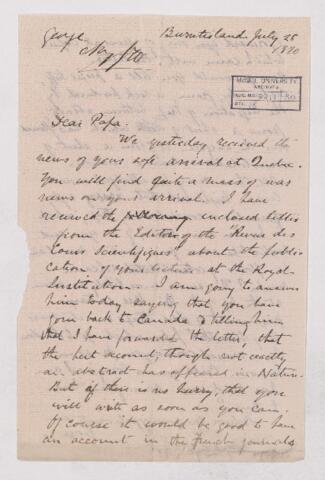 George
Burntisland July 28
1870
McGILL UNIVERSITY
ARCHIVES
ACC. NO.
Dear Papa.
We yesterday received the
news of your safe arrival at Quebec.
You will find quite a mass of war
news on your arrival. I have
received the following enclosed letter
from the Editor of the "Revue des
Cours Scientifiques" about the publi
cation of your lecture at the Royal
Institution. I am going to answer
him today saying that you have
gone back to Canada & telling him
that I have forwarded the letter, that
the best account, though not exactly
an abstract has appeared in Nature
But if there is no hurry, that you
will write as soon as you can.
Of course it would be good to have
an account in the french journals